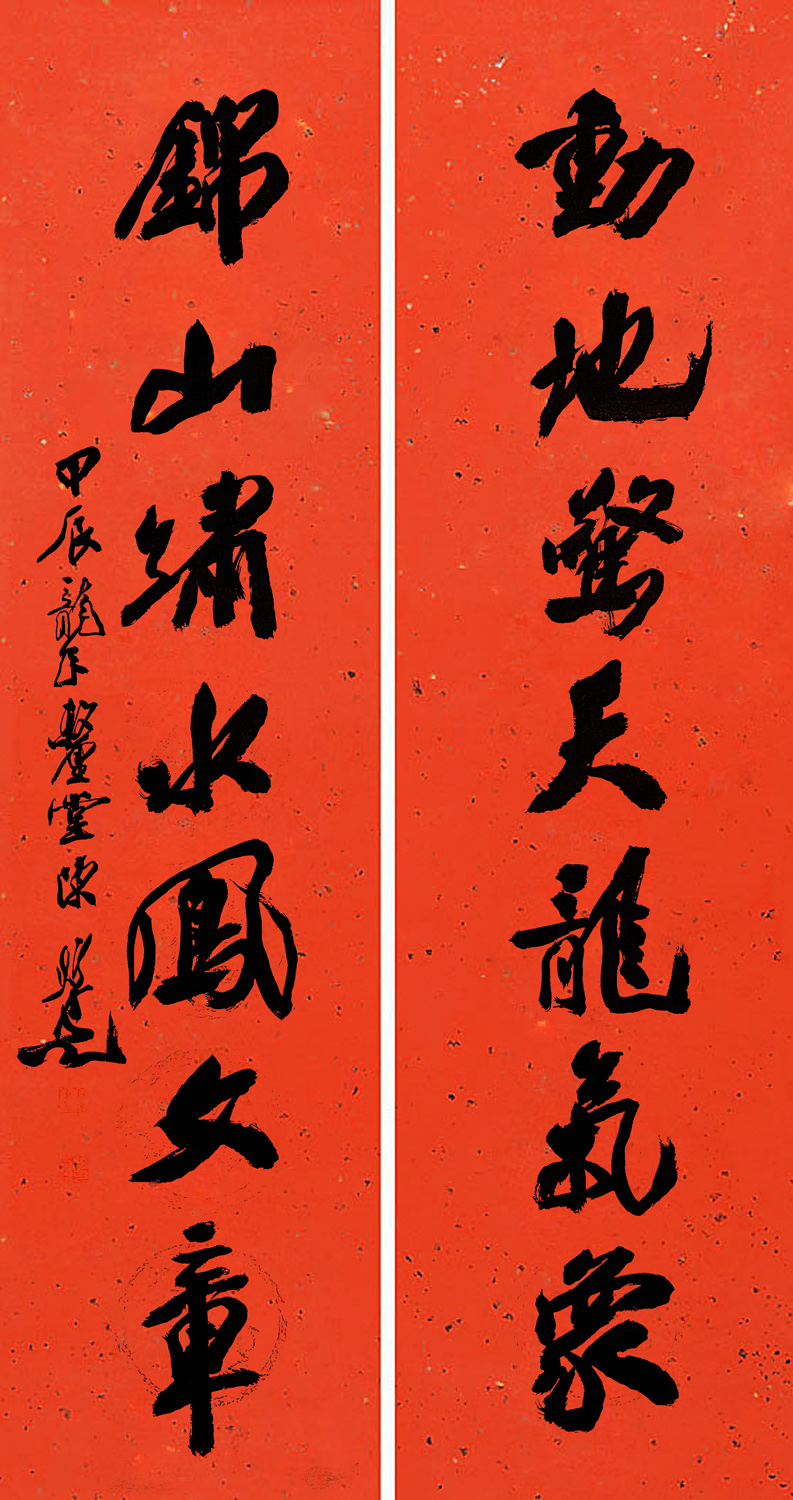 動地驚天龍氣象
錦山繡水鳳文章
甲辰龍年 堂陳